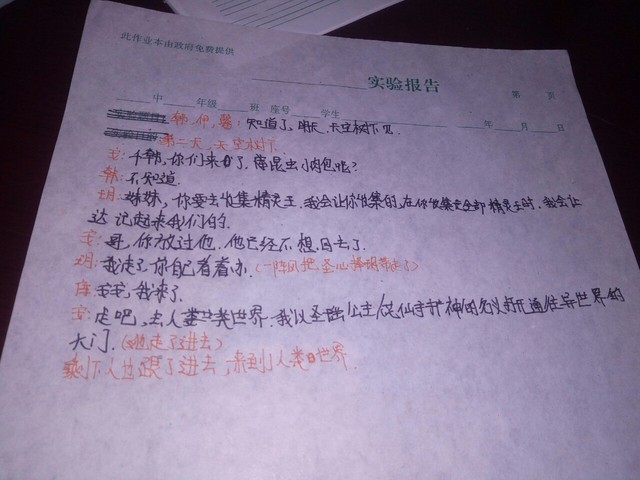 此作业本由政府免费提供
实验报告 第 页
中 年级 班 座号 学生 年 月 日
韩,伊,馨:知道了,明天,天空树下见.
第二天,天空树下
千韩,你们来了,薛昆虫小肉包呢?
韩:不知道.
玥:妹妹,你要去收集精灵王.我会让你收集的,在你收集完全部精灵王时.我会让
达 记起来我们的.
哥,你放过他.他已经不想回去了.
玥:我走了,你自己看着办.(一阵风把圣心 带走了)
我来了.
走吧,去人类世界.我以圣 公主 神的名义打开通往异世界的
大门.( 走了进去)
剩下人也跟了进去,来到人类世界.